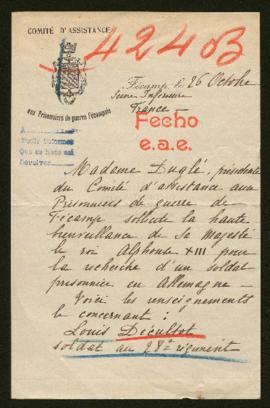 COMITÉ D'ASSISTANCE
42403
aux Prisonniers de guerre Fécampois
Fécamp le 26 Octobre
Seine Inférieure
France
Fecho
e.a.e.
Madame Duglé, présidente
du Comité d'assistance aux
Prisonniers de guerre de
Fécamp sollicite la haute
bienveillance de Sa Majesté
le roi Alphonse XIII pour
la recherche d'un soldat
prisonnier en Allemagne –
Voici les renseignements
le concernant :
Louis Décultot
soldat au 28e régiment